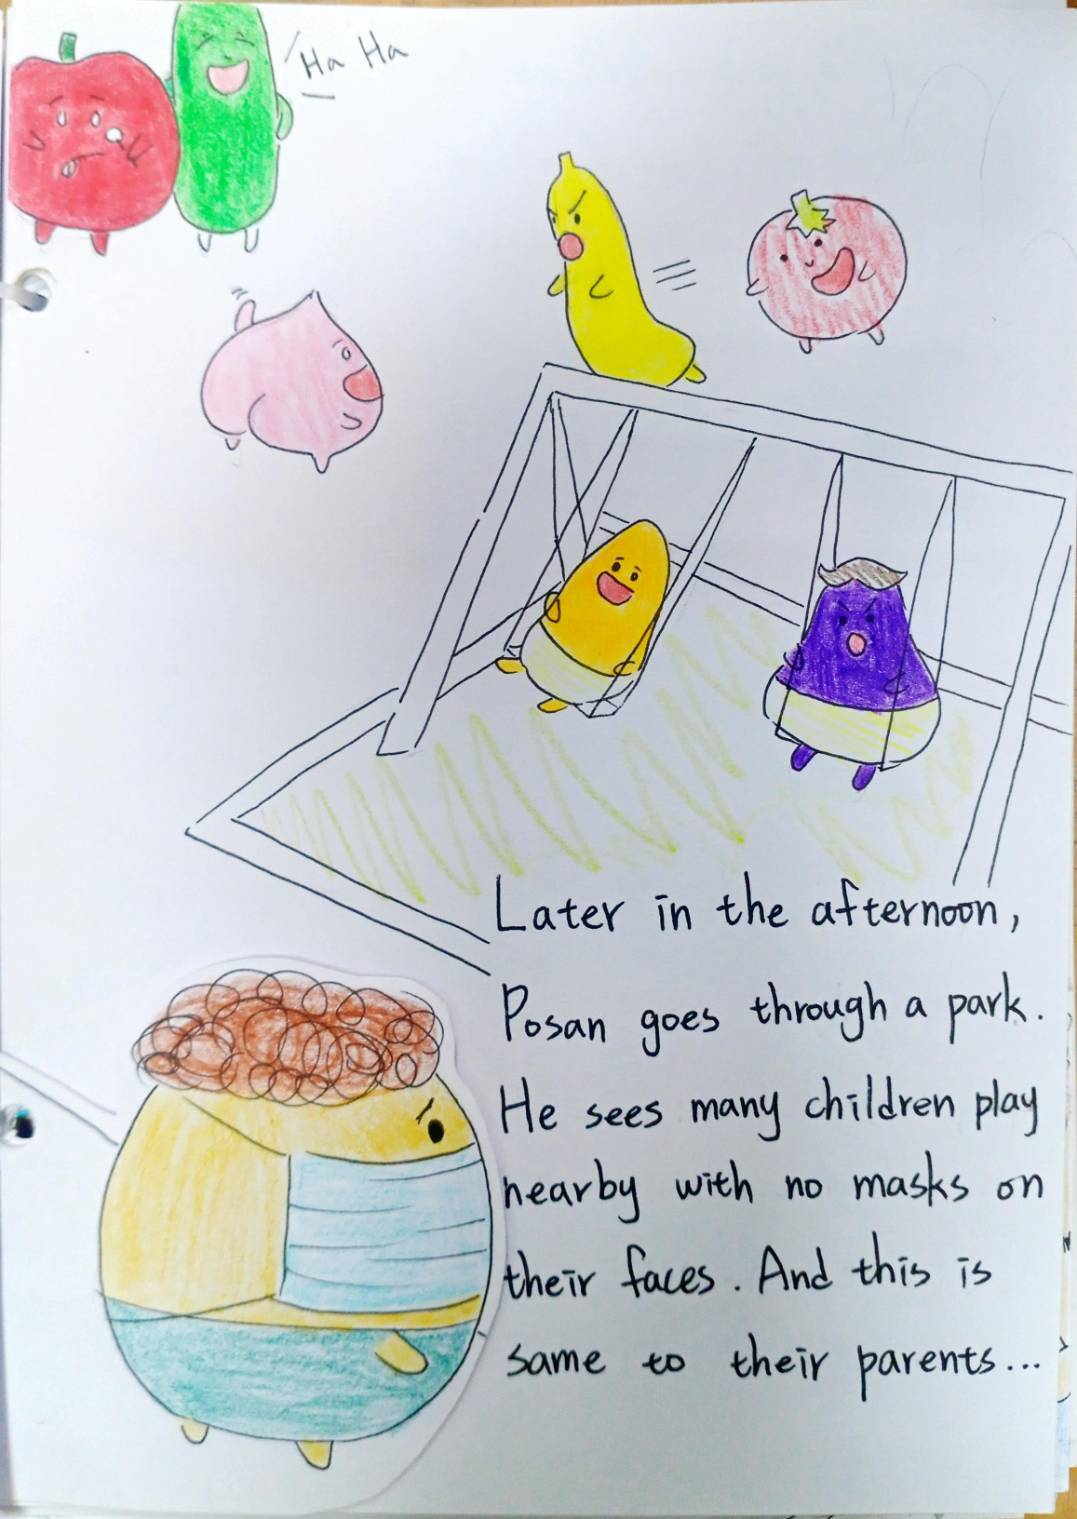 Ha Ha
Later in the afternoon,
Posan goes through a park.
He sees many children play
nearby with no masks on
their faces. And this is
same to their parents...